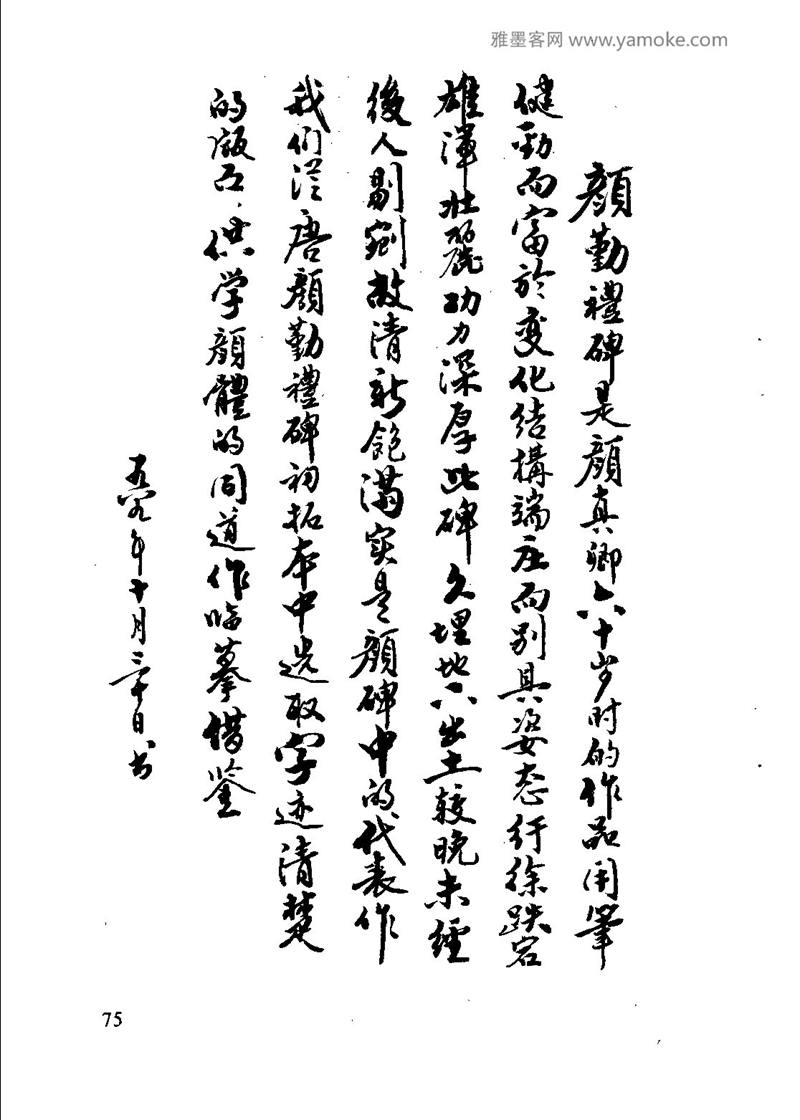 雅墨客网 www.yamoke.com
顔勤禮碑是顔真卿六十岁时的作品用筆
健勁而富於变化结構端庄而别具姿态行徐跌宕
雄渾壮麗功力深厚此碑久埋地下出土較晚未經
後人剔剜故清新飽满实是顔碑中的代表作
我们從唐顔勤禮碑初拓本中选取字迹清楚
的 供学顔體的同道作临摹借鉴
年十月三十日书
75